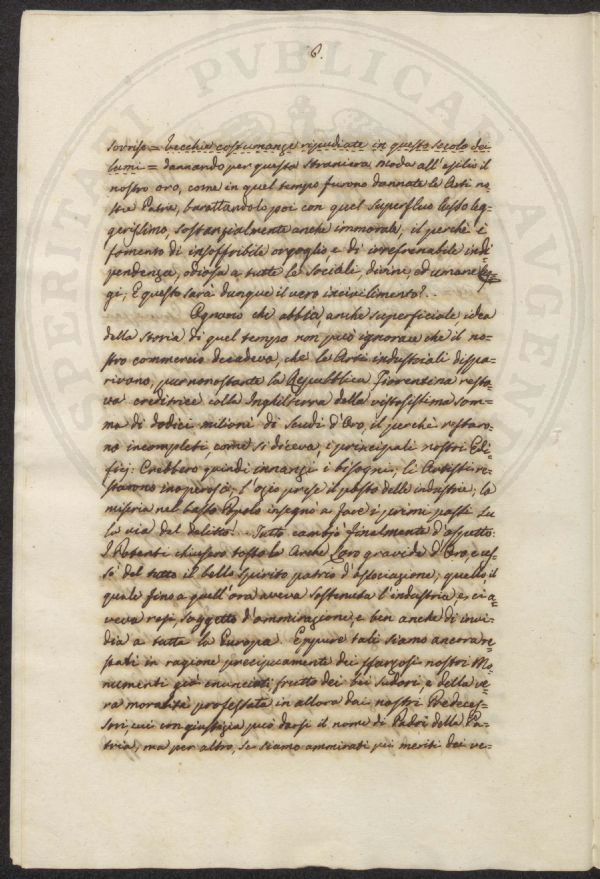 6.
sovrise = vecchie costumanze ripudiate in questo secolo dei
lumi = dannando per questa straniera moda all'esilio il
nostro oro, come in quel tempo furono dannate le Arti no=
stre Patrie, barattandolo poi con quel superfluo lusso leg=
gerissimo, sostanzialmente anche immorale, il perchè è
fomento di insoffribile orgoglio, e di irrefrenabile indi=
pendenza, odiosa a tutte le sociali, divine, ed umane leg=
gi; E questo sarà dunque il vero incivilimento?..
Ognuno che abbia, anche superficiale, idea
della storia di quel tempo non può ignorare che il no=
stro commercio decadeva, che le Arti industriali dispa=
rivano, purnonostante la Repubblica Fiorentina resta=
va creditrice colla Inghilterra della vistosissima som=
ma di dodici milioni di Scudi d'Oro, il perchè restaro=
no incompleti, come si diceva, i principali nostri Edi=
fizj: Crebbero quindi innanzi i bisogni; li Artisti re=
starono inoperosi; l'ozio prese il posto della industria; la
miseria nel basso Popolo insegnò a fare i primi passi su
la via del delitto!.. Tutto cambiò finalmente d'aspetto:
I Potenti chiusero tosto le Arche Loro gravide d'Oro, e ces=
sò del tutto il bello spirito patrio d'associazione, quello, il
quale fino a quell'ora aveva sostenuta l'industria, e ci a=
veva resi, soggetto d'ammirazione, e ben anche di invi=
dia a tutta la Europa. Eppure tali siamo ancora re=
stati in ragione precipuamente dei sfarzosi nostri Mo=
numenti già enunciati, frutto dei bei sudori, e della ve=
ra moralità professata in allora dai nostri Predeces=
sori, cui con giustizia può darsi il nome di Padri della Pa=
tria, ma per altro, se siamo ammirati pei meriti dei ve=
SPVBLICAE
AVGEN